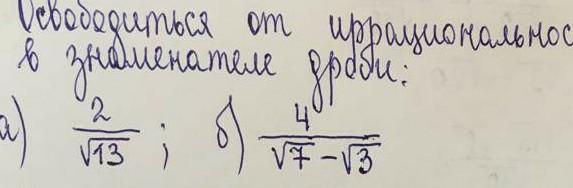 Освободиться от иррациональнос
в знаменателе дроби:
а) 2/√13 ; б) 4/(√7 - √3)